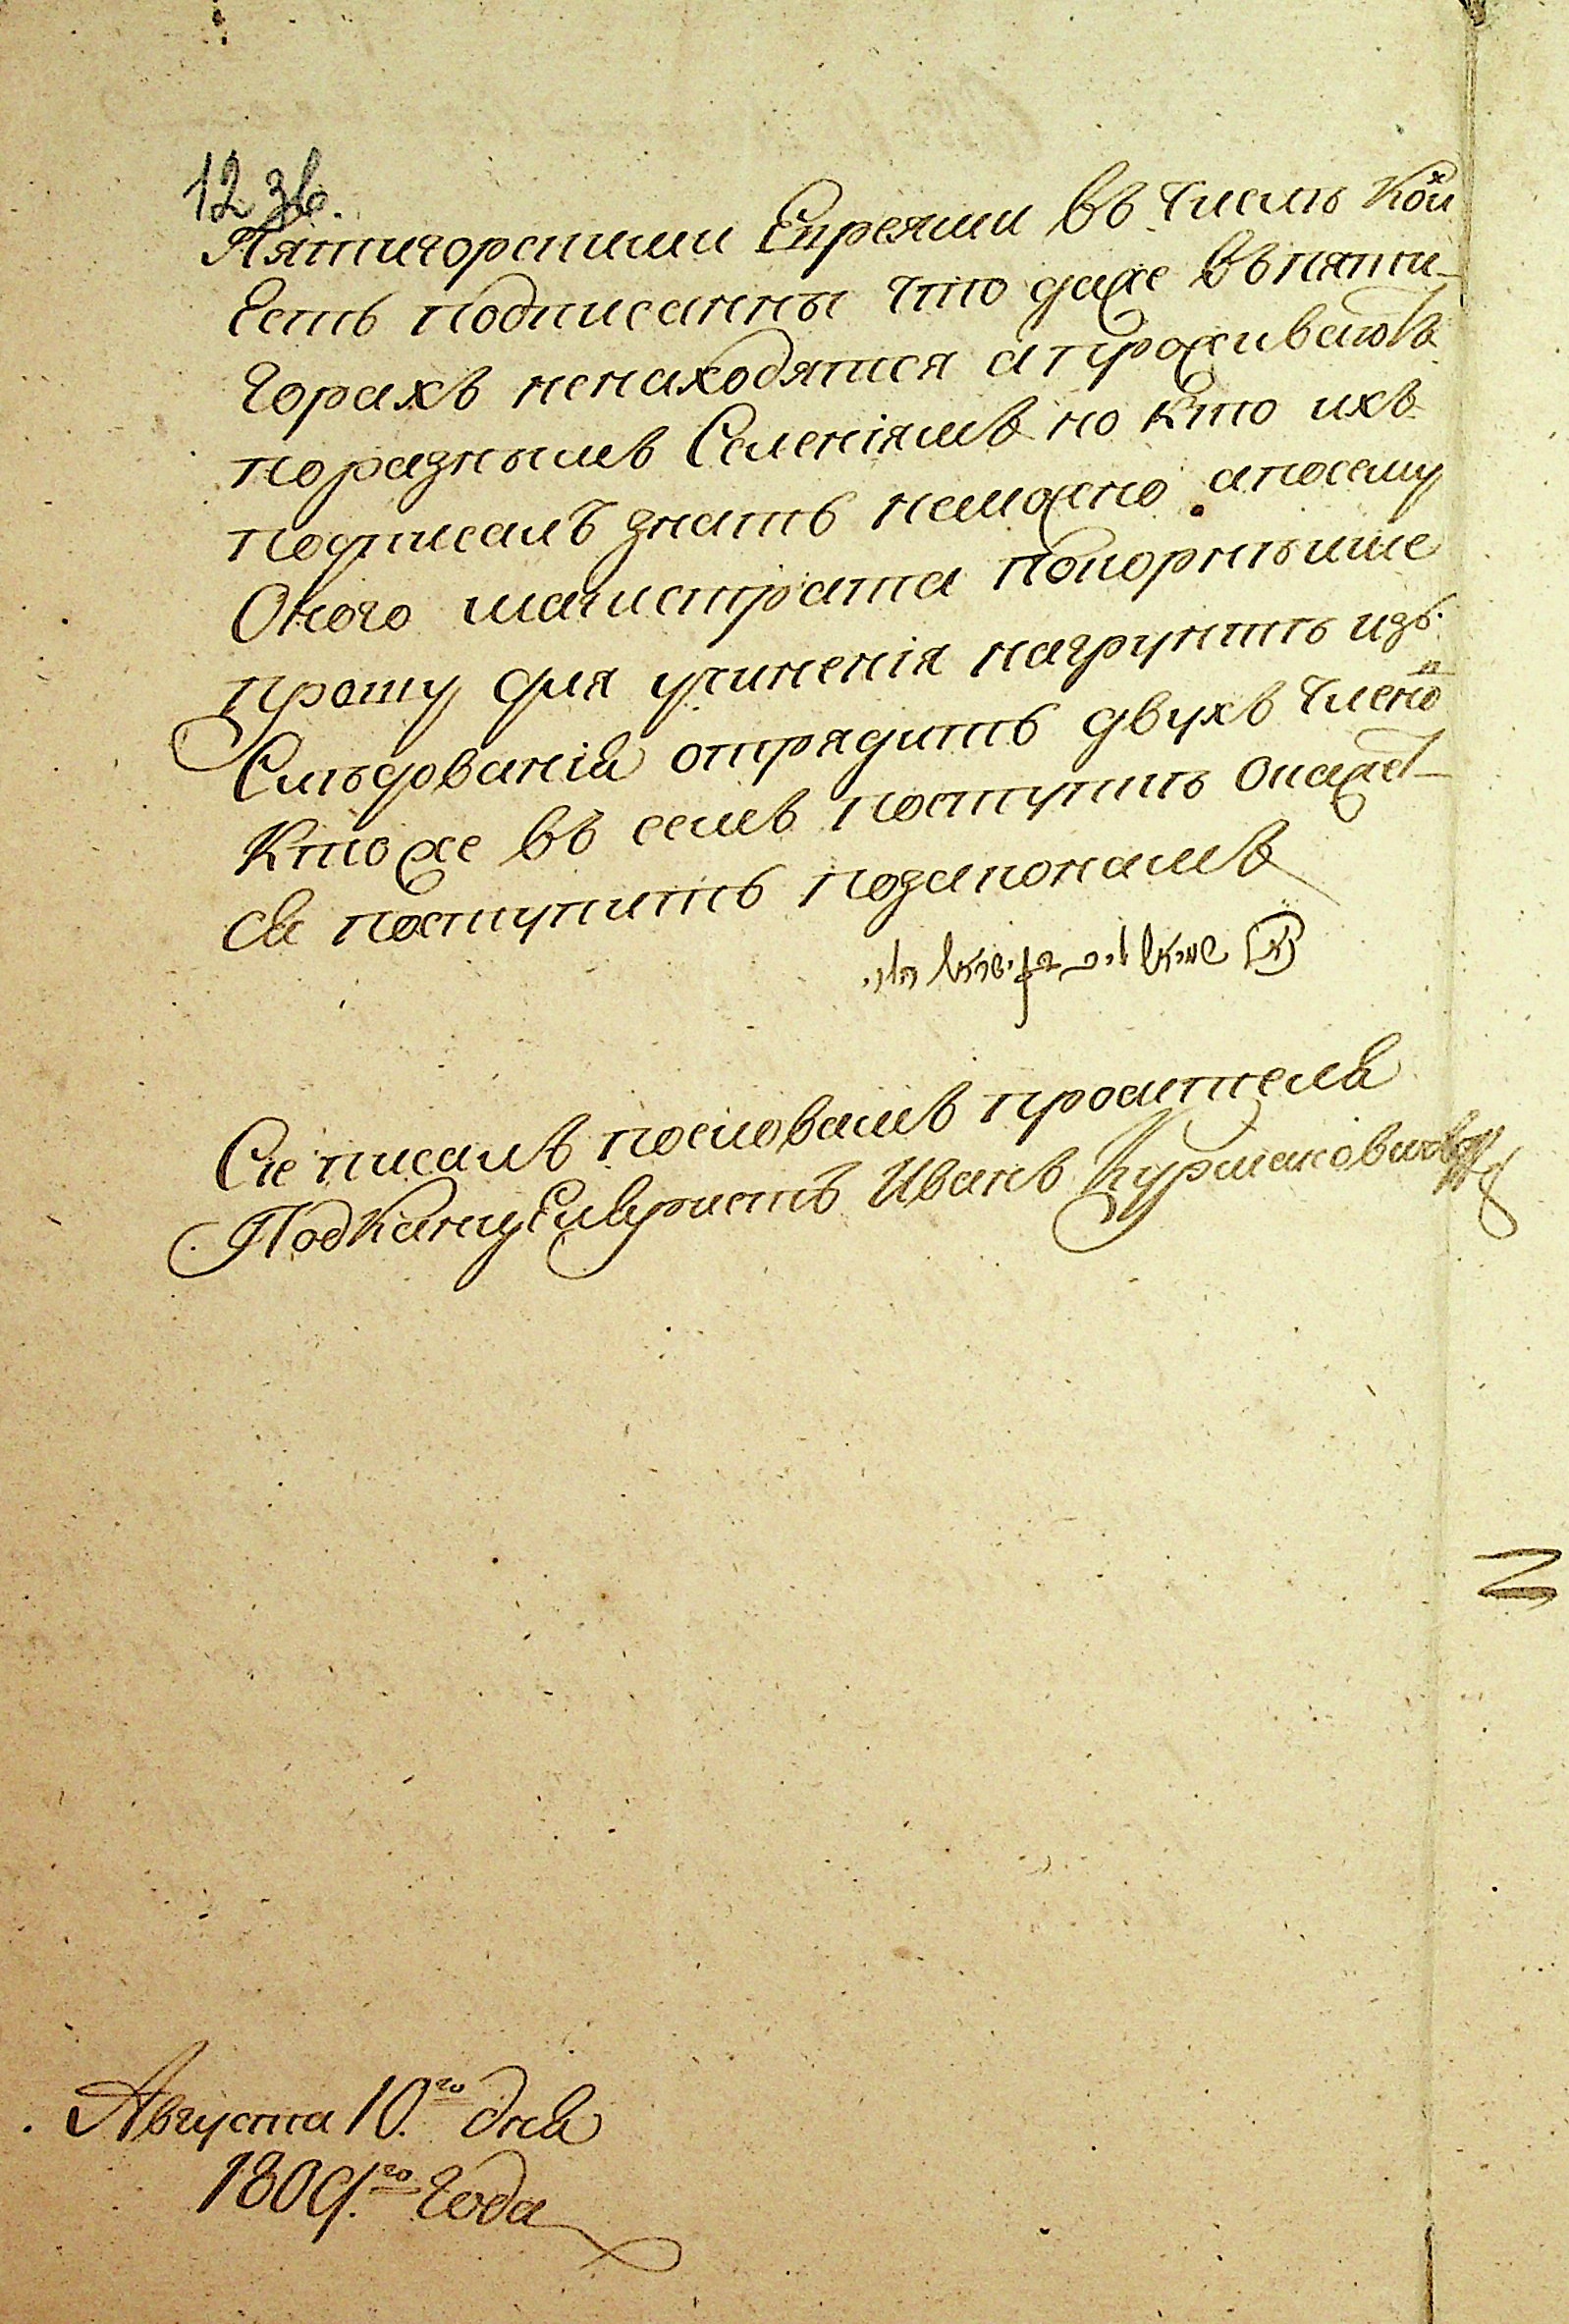 12 зв.
Пятигорскими Евреями въ числѣ кои^х
Есть подписанны что даже въ пяти-
горахъ ненаходятся а проживаютъ
поразнымъ Селеніямъ но кто ихъ
подписалъ знать неможно апосему
Оного магистрата покорнѣише
прошу для учиненія нагрунтѣ изъ
Слѣдованія отрядить двухъ члено^в
Ктоже въ семъ поступить окажет-
ся поступить позаконамъ
Сіе писалъ пословамъ просителя
Подканцеляристъ Иванъ
Августа 10.го дня
1809.го года